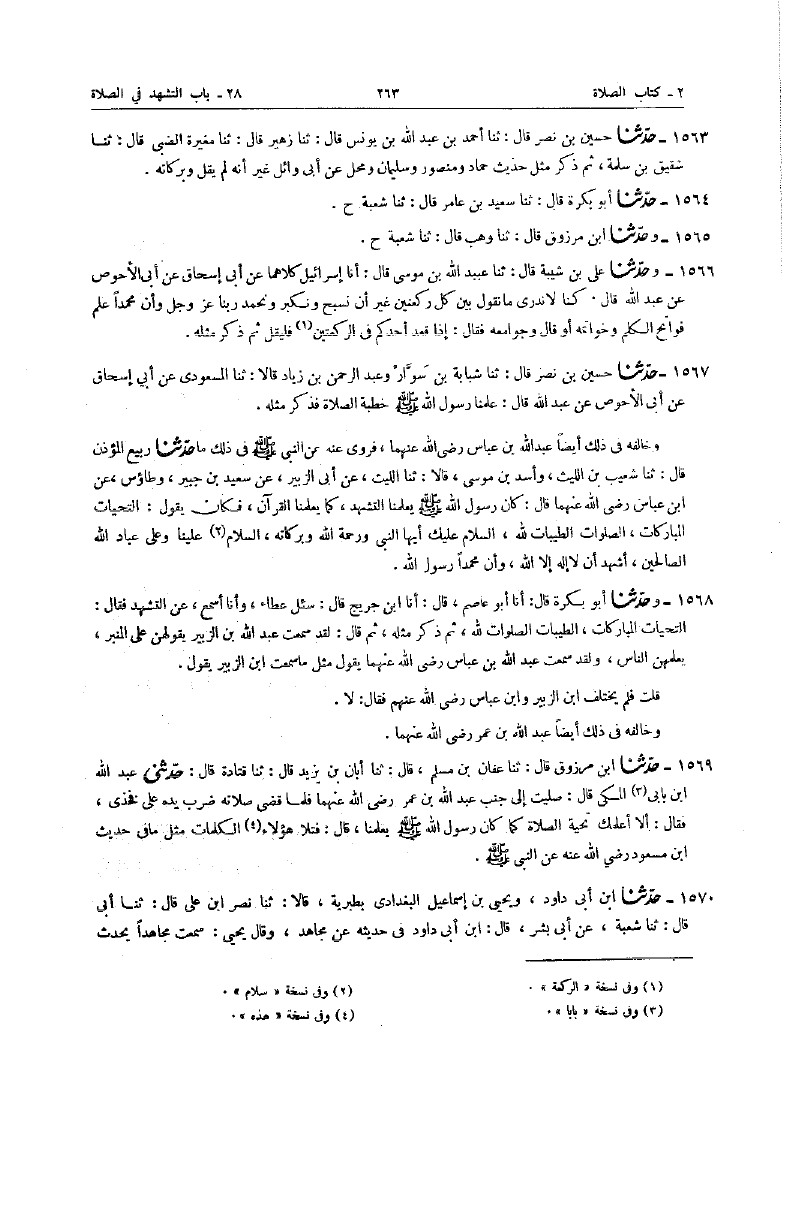 ٢ - كتاب الصلاة ٢٦٣ ٢٨ - باب التشهد في الصلاة
١٥٦٣ - حدثنا حسين بن نصر قال : ثنا أحمد بن عبد الله بن يونس قال : ثنا زهير قال : ثنا مغيرة الضبى قال : ثنا
شقيق بن سلمة ، ثم ذكر مثل حديث حماد ومنصور وسليمان ومحل عن أبى وائل غير أنه لم يقل وبركاته .
١٥٦٤ - حدثنا أبو بكرة قال : ثنا سعيد بن عامر قال : ثنا شعبة ح .
١٥٦٥ - و حدثنا ابن مرزوق قال : ثنا وهب قال : ثنا شعبة ح .
١٥٦٦ - و حدثنا على بن شيبة قال : ثنا عبيد الله بن موسى قال : أنا إسرائيل كلاهما عن أبى إسحاق عن أبى الأحوص
عن عبد الله قال . كنا لاندرى مانقول بين كل ركعتين غير أن نسبح ونكبر ونحمد ربنا عز وجل وأن محمداً علم
فواتح الكلم وخواتمه أو قال وجوامعه فقال : إذا قعد أحدكم فى الركعتين(١) فليقل ثم ذكر مثله .
١٥٦٧ - حدثنا حسين بن نصر قال : ثنا شبابة بن سوَّار وعبد الرحمن بن زياد قالا : ثنا المسعودى عن أبي إسحاق
عن أبى الأحوص عن عبد الله قال : علمنا رسول الله ﷺ خطبة الصلاة فذكر مثله .
وخالفه فى ذلك أيضاً عبدالله بن عباس رضى الله عنهما ، فروى عنه عن النبي ﷺ فى ذلك ما حدثنا ربيع المؤذن
قال : ثنا شعيب بن الليث ، وأسد بن موسى ، قالا : ثنا الليث ، عن أبى الزبير ، عن سعيد بن جبير ، وطاؤس ، عن
ابن عباس رضى الله عنهما قال : كان رسول الله ﷺ يعلمنا التشهد ، كما يعلمنا القرآن ، فكان يقول : التحيات
المباركات ، الصلوات الطيبات لله ، السلام عليك أيها النبى ورحمة الله وبركاته ، السلام(٢) علينا وعلى عباد الله
الصالحين ، أشهد أن لاإله إلا الله ، وأن محمداً رسول الله .
١٥٦٨ - و حدثنا أبو بكرة قال: أنا أبو عاصم ، قال : أنا ابن جريج قال : سئل عطاء ، وأنا أسمع ، عن التشهد فقال :
التحيات المباركات ، الطيبات الصلوات لله ، ثم ذكر مثله ، ثم قال : لقد سمعت عبد الله بن الزبير يقولهن على المنبر ،
يعلمهن الناس ، ولقد سمعت عبد الله بن عباس رضى الله عنهما يقول مثل ماسمعت ابن الزبير يقول .
قلت فلم يختلف ابن الزبير وابن عباس رضى الله عنهم فقال: لا .
وخالفه فى ذلك أيضاً عبد الله بن عمر رضى الله عنهما .
١٥٦٩ - حدثنا ابن مرزوق قال : ثنا عفان بن مسلم ، قال : ثنا أبان بن يزيد قال : ثنا قتادة قال : حدثنى عبد الله
ابن بابى(٣) المكى قال : صليت إلى جنب عبد الله بن عمر رضى الله عنهما فلما قضى صلاته ضرب يده على فخذى ،
فقال : ألا أعلمك تحية الصلاة كما كان رسول الله ﷺ يعلمنا ، قال : فتلا هؤلاء(٤) الكلمات مثل مافى حديث
ابن مسعود رضى الله عنه عن النبى ﷺ .
١٥٧٠ - حدثنا ابن أبى داود ، ويحيى بن إسماعيل البغدادى بطبرية ، قالا : ثنا نصر ابن على قال : ثنا أبى
قال : ثنا شعبة ، عن أبى بشر ، قال : ابن أبى داود فى حديثه عن مجاهد ، وقال يحيى : سمعت مجاهداً يحدث
(١) وفى نسخة « الركعة » . (٢) وفى نسخة « سلام » .
(٣) وفى نسخة « بابا » . (٤) وفى نسخة « هذه » .